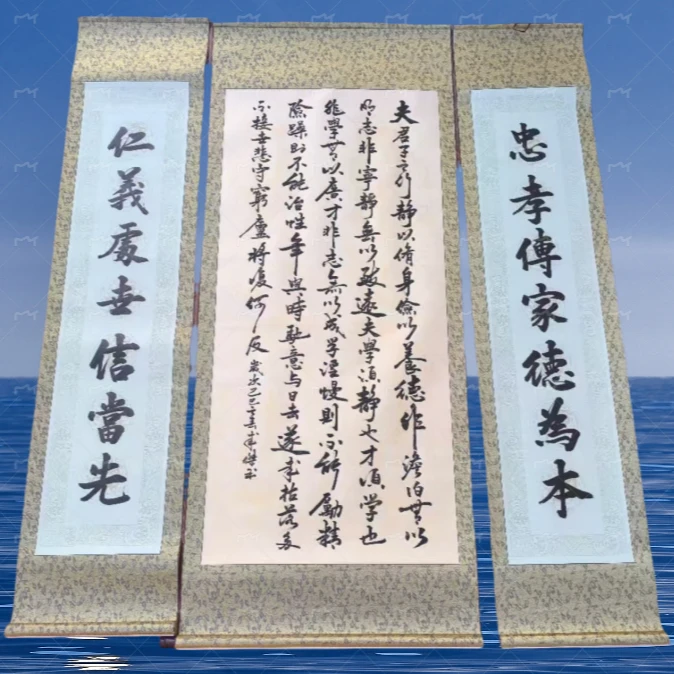 忠孝傳家德為本
夫君子之行靜以脩身儉以養德非澹泊無以
明志非寧靜無以致遠夫學須靜也才須學也
非學無以廣才非志無以成學淫慢則不能勵精
險躁則不能冶性年與時馳意与日去遂成枯落多
不接世悲守窮廬將復何及歲次己巳
仁義處世信當先